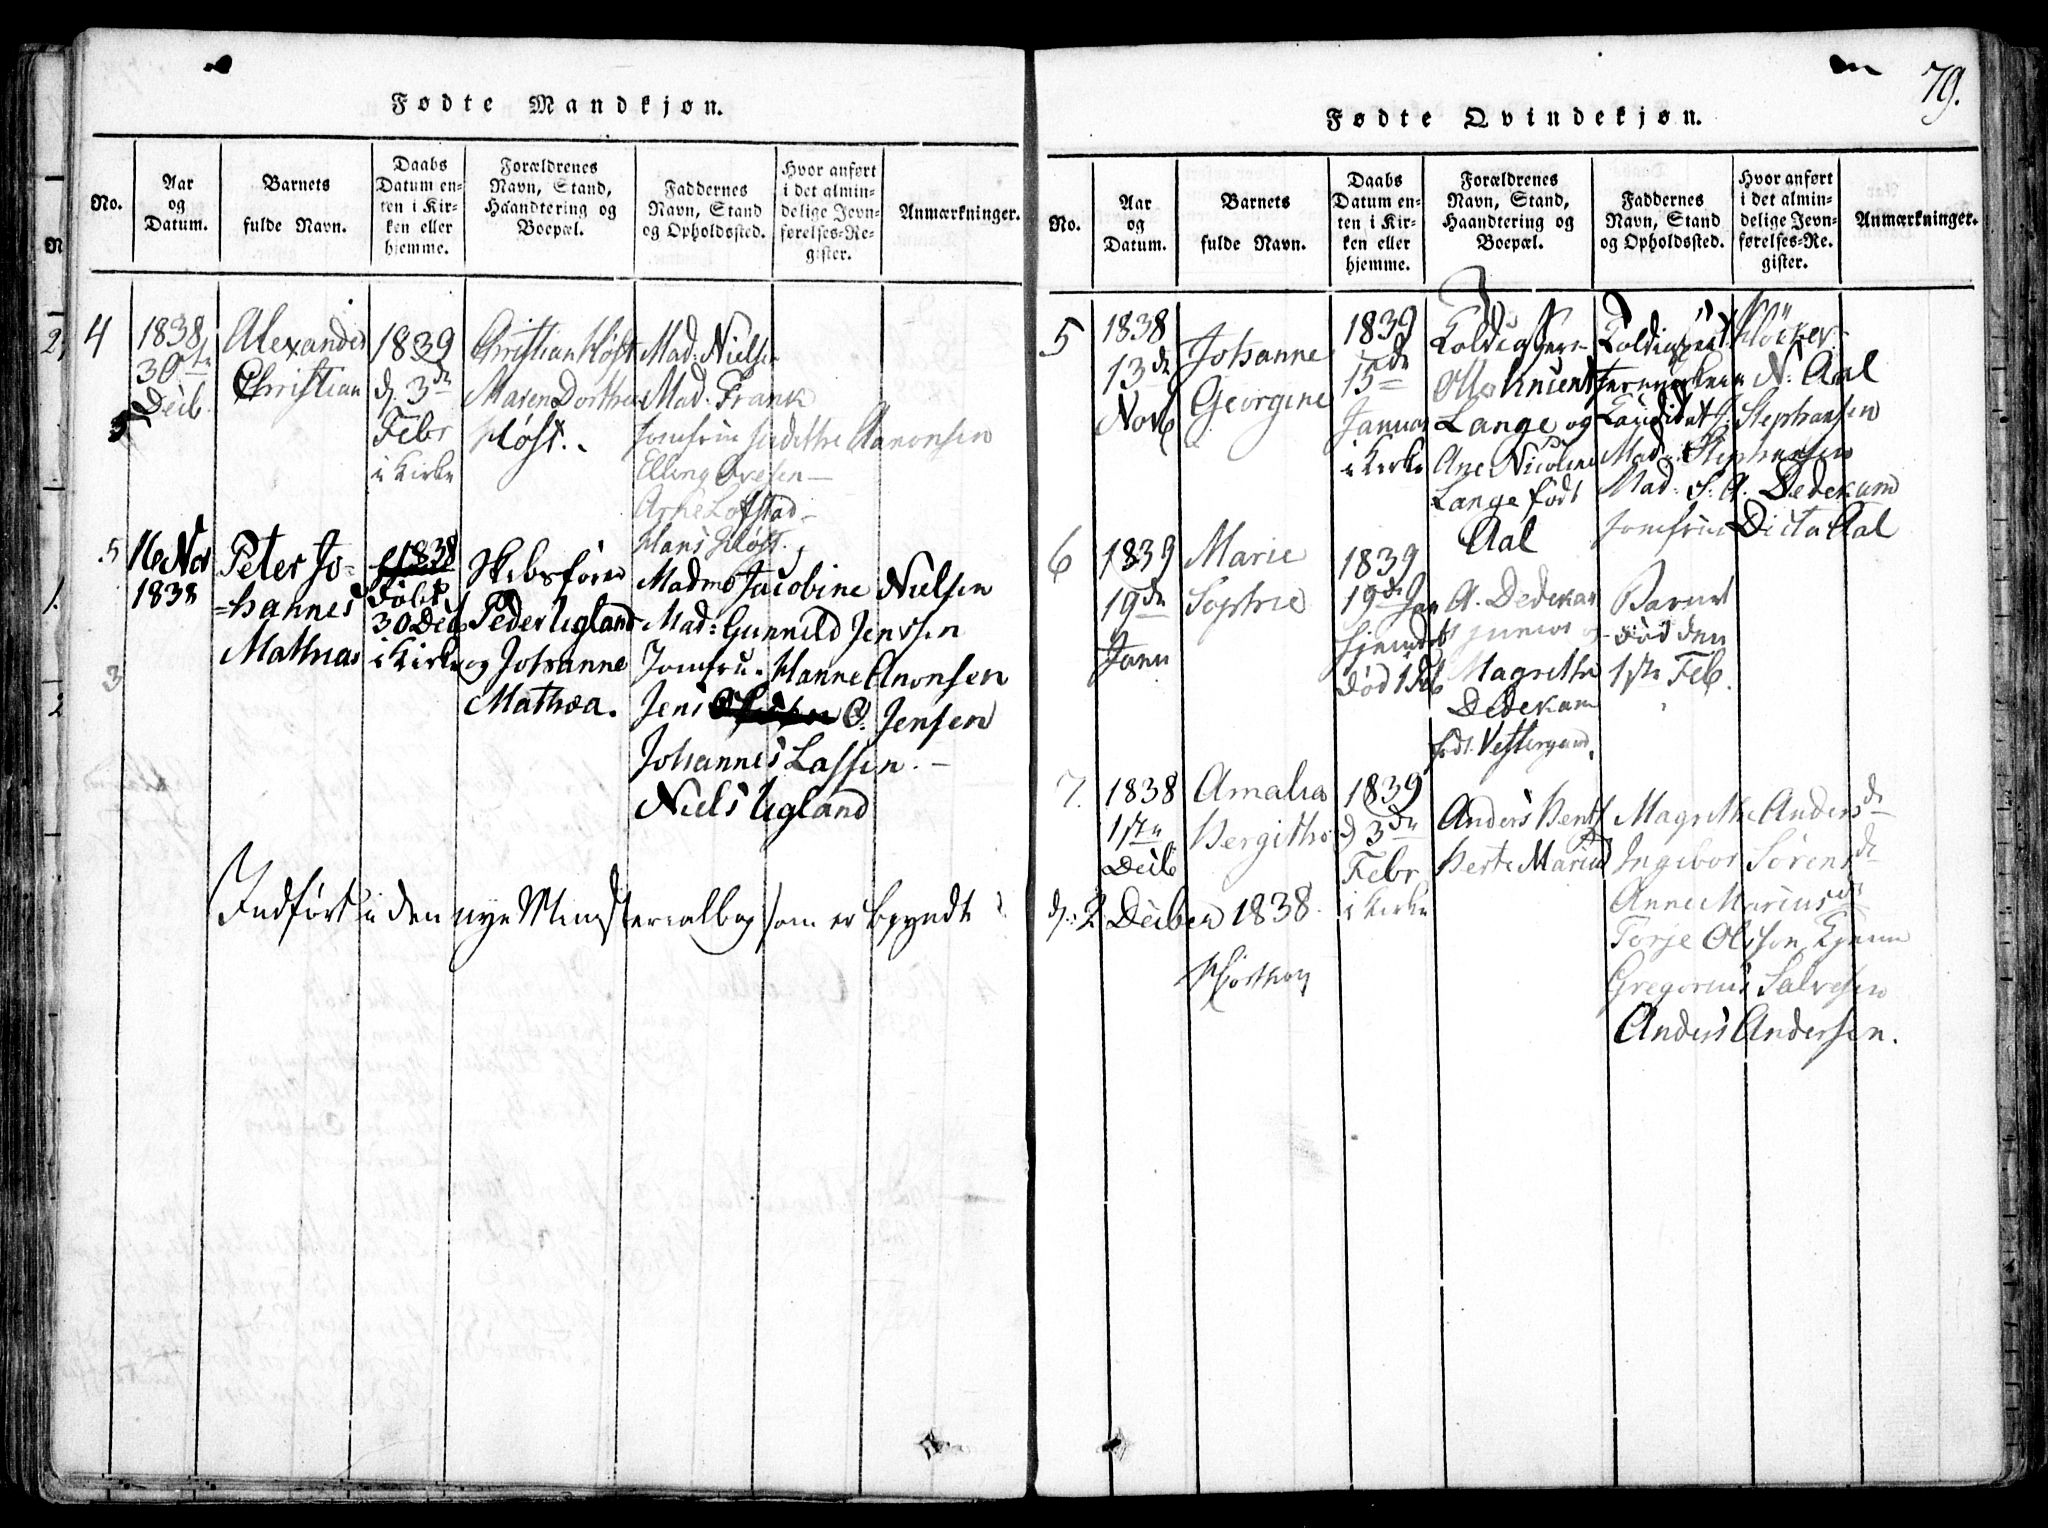 Fødte Mandkjøn.
No.
Aar
og
Datum.
Barnets
fulde Navn.
Daabs
Datum en-
ten i Kir-
ken eller
hjemme.
Forældrenes
Navn, Stand,
Haandtering og
Boepæl.
Faddernes
Navn, Stand
og Opholdssted.
Hvor anført
i det almin-
delige Jevn-
førelses-Re-
gister.
Anmærkninger.
4
1838
30te
Decb.
Alexander
Christian
1839
d. 3de
Febr
i Kirke
Christian Høst
Maren Dorthea
Høst.
Mad: Nielsen
Mad. Frank
Jomfrue Judithe Aanonsen
Elling Ovesen
Arne Lofstad
Hans Høst.
5
16 Nov
1838
Peter Jo-
=hannes
Mathias
1838
Døbt
30 Dec
i Kirke
Skibsfører
Peder Ugland
og Johanne
Mathea.
Madme Jacobine Nielsen
Mad: Gunnild Jenssen
Jomfru. Hanne Anonsen
Jens O. Jensen
Johannes Lassen.
Niels Ugland
Indført i den nye Ministerialbog som er begyndt
79.
Fødte Qvindekjøn.
No.
Aar
og
Datum.
Barnets
fulde Navn.
Daabs
Datum en-
ten i Kir-
ken eller
hjemme.
Forældrenes
Navn, Stand,
Haandtering og
Boepæl.
Faddernes
Navn, Stand
og Opholdssted.
Hvor anført
i det almin-
delige Jevn-
førelses-Re-
gister.
Anmærkninger.
5
1838
13de
Novb
Johanne
Georgine
1839
15de
Januar
i Kirke
Toldinspec
Otto Knudt
Lange og
Ane Nicoline
Lange født
Aal
Toldinspect. Kløcker
N: Aal
Candidat J. Stephansen
Mad: Stephansen
Mad: S: A. Dedekam
Jomfrue Dicta Aal
6
1839
19de
Janu
Marie
Sophie
1839
19de Jan
hjemdøbt
død 1 Feb
A. Dedekam
junior og
Magrethe
Dedekam
født Vestergaard.
Barnet
død den
1ste Feb.
7.
1838
1ste
Decb
Amalia
Bergithe
1839
d 3de
Febr
i Kirke
Anders Bents
Berte Maria
Magrethe Andersdr
Ingebor Sørensdr
Anne Mariusdr
Torje Olsson
Gregorius Salvesen
Anders Andersen.
d: 2 Decber 1838.
Hjorthoy